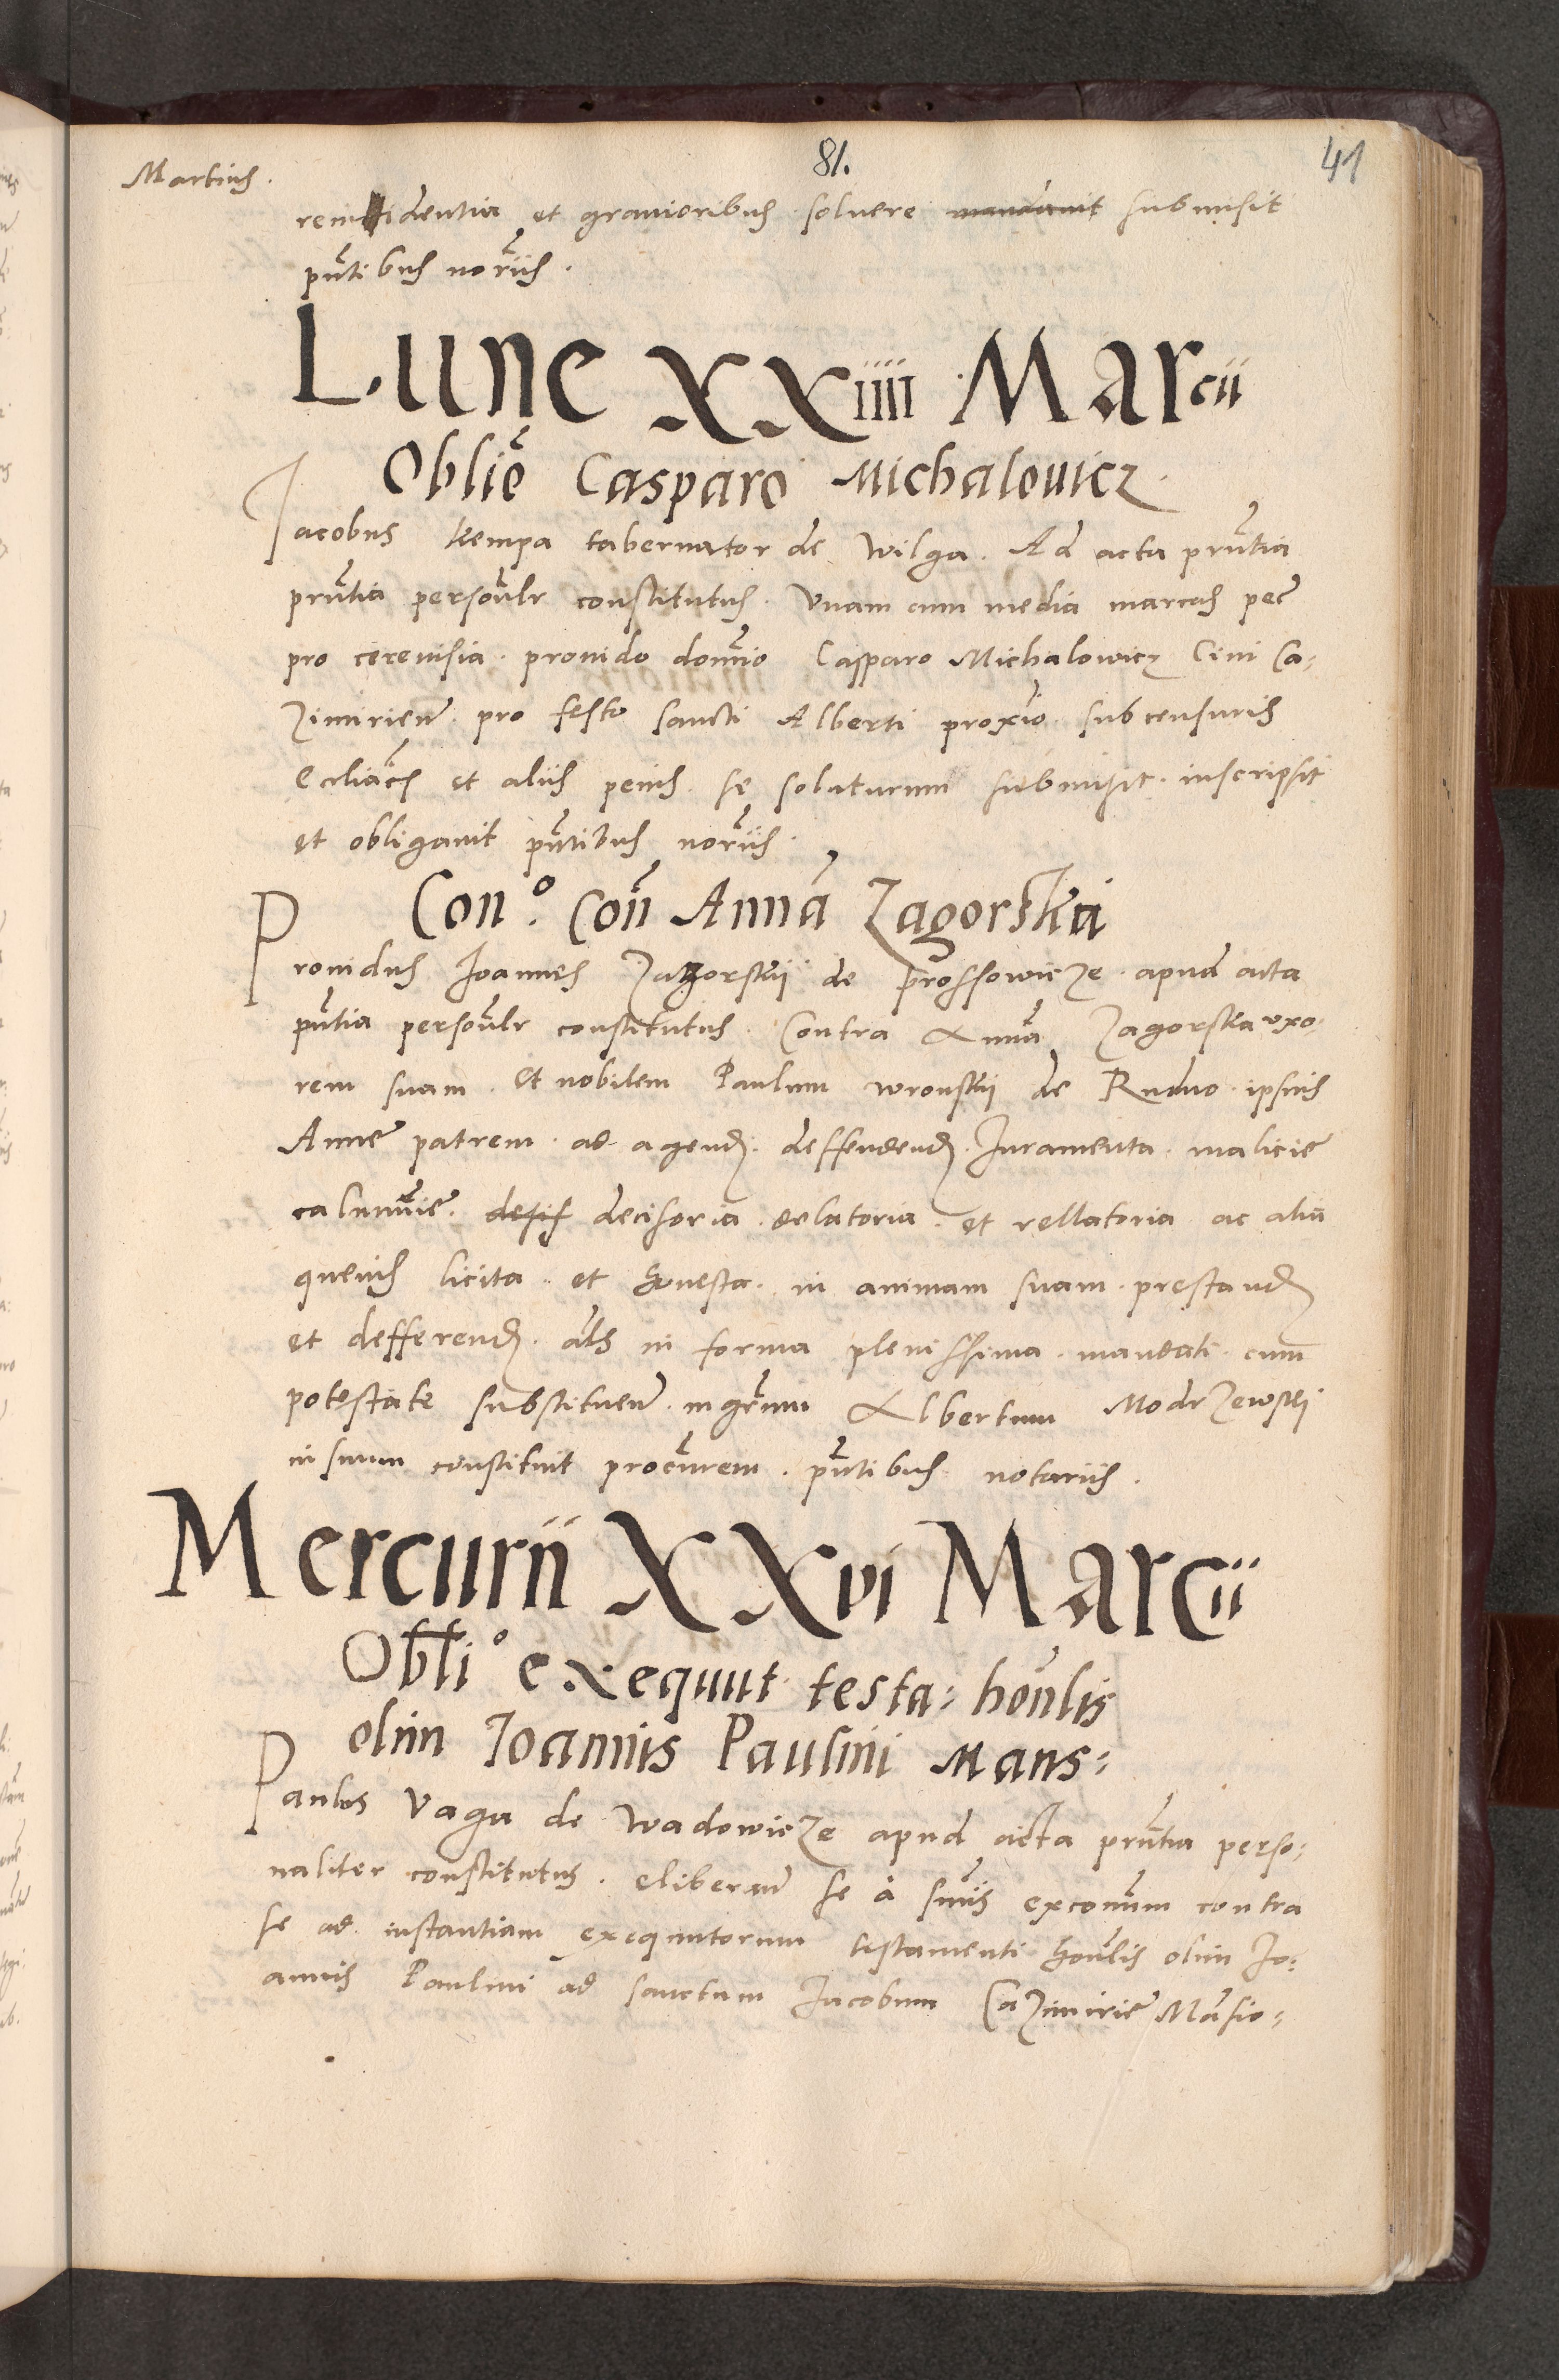 81.
41
Martius.
reincidentia et gravioribus solvere mandavit submisit
pñtibus norijs.
Lune XXiiii Marcii
Oblio Casparo Michalovicz
Jacobus Kempa tabernator de Wilga. Ad acta prñtia
prñtia persoñlr constitutus. Vnam cum media marcas pec
pro cerevisia. provido domino Casparo Michalowicz Civi Ca-
zimirien. pro festo sancti Alberti proxio. sub censuris
Ecliacis et aliis penis. se soluturum submisit. inscripsit
et obligavit pñtibus norijs.
Con.o Coñ Annã Zagorska
Providus Joannes Zagorskij de Prossowicze. apud acta
pñtia persoñlr constitutus. Contra Annã Zagorska vxo-
rem suam. Et nobilem Paulum Wronskij de Rudno. ipsius
Anne patrem. ad agend. deffendend. Juramenta. malicie
calumnie. desis decisoria. delatoria. et rellatoria ac alia
quevis licita. et honesta. in animam suam. prestand
et defferend. als in forma plenissima. mandati. cum
potestate substituen. mgrũm Albertum Modrzewski
in suum constituit procurem. pñtibus notarijs.
Mercurii XXvi Marcii
Obli.o exequut testa- hoñlis
olim Joannis Paulini Mans-
Paulus Vaga de Wadowicze apud acta prñtia perso-
naliter constitutus. eliberans se à sñiis exconum contra
se ad instantiam exequutorum testamenti hoñlis olim Jo-
annis Paulini ad sanctum Jacobum Cazimirie Mãsio-